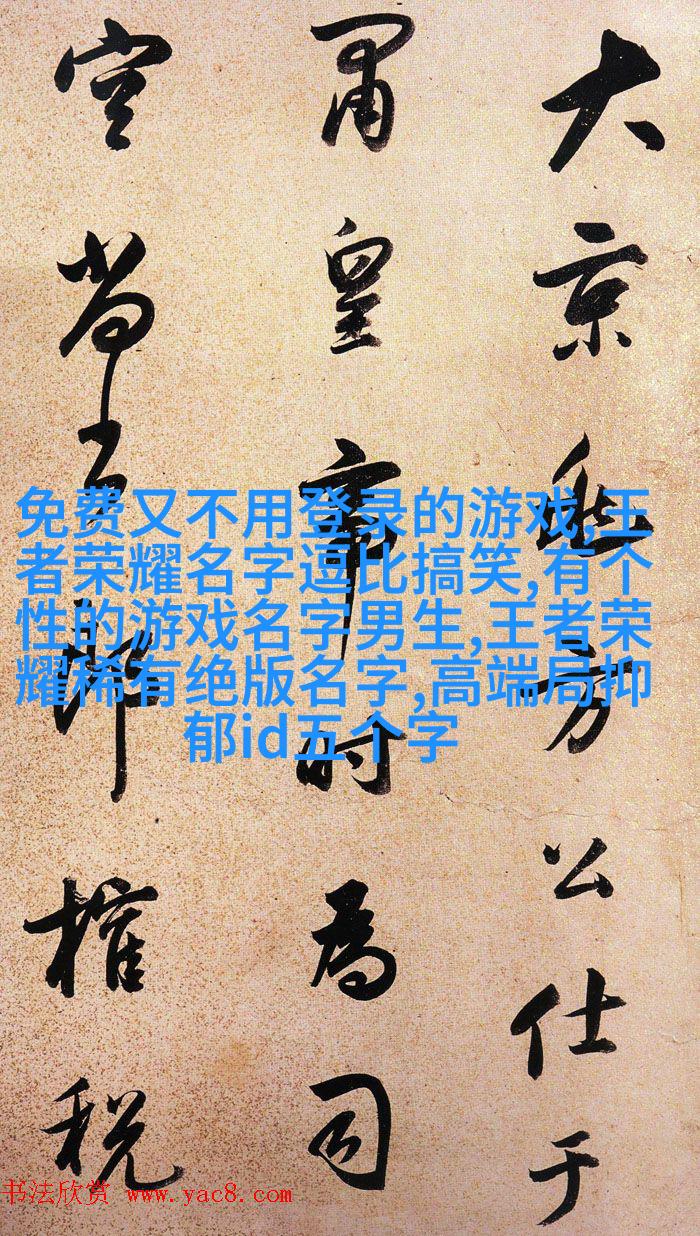 大京兆方公仕于
肅皇帝时為司
空尚书郎榷税
免费又不用登录的游戏,王
者荣耀名字逗比搞笑,有个
性的游戏名字男生,王者荣
耀稀有绝版名字,高端局抑
郁id五个字
书法欣赏 www.yac8.com